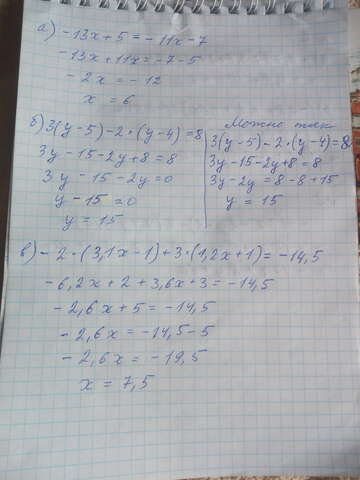 а) -13x+5=-11x-7
-13x+11x=-7-5
-2x=-12
x=6
б) 3(y-5)-2·(y-4)=8
3y-15-2y+8=8
3y-15-2y=0
y-15=0
y=15
Можно так
3(y-5)-2·(y-4)=8
3y-15-2y+8=8
3y-2y=8-8+15
y=15
в) -2·(3,1x-1)+3·(1,2x+1)=-14,5
-6,2x+2+3,6x+3=-14,5
-2,6x+5=-14,5
-2,6x=-14,5-5
-2,6x=-19,5
x=7,5